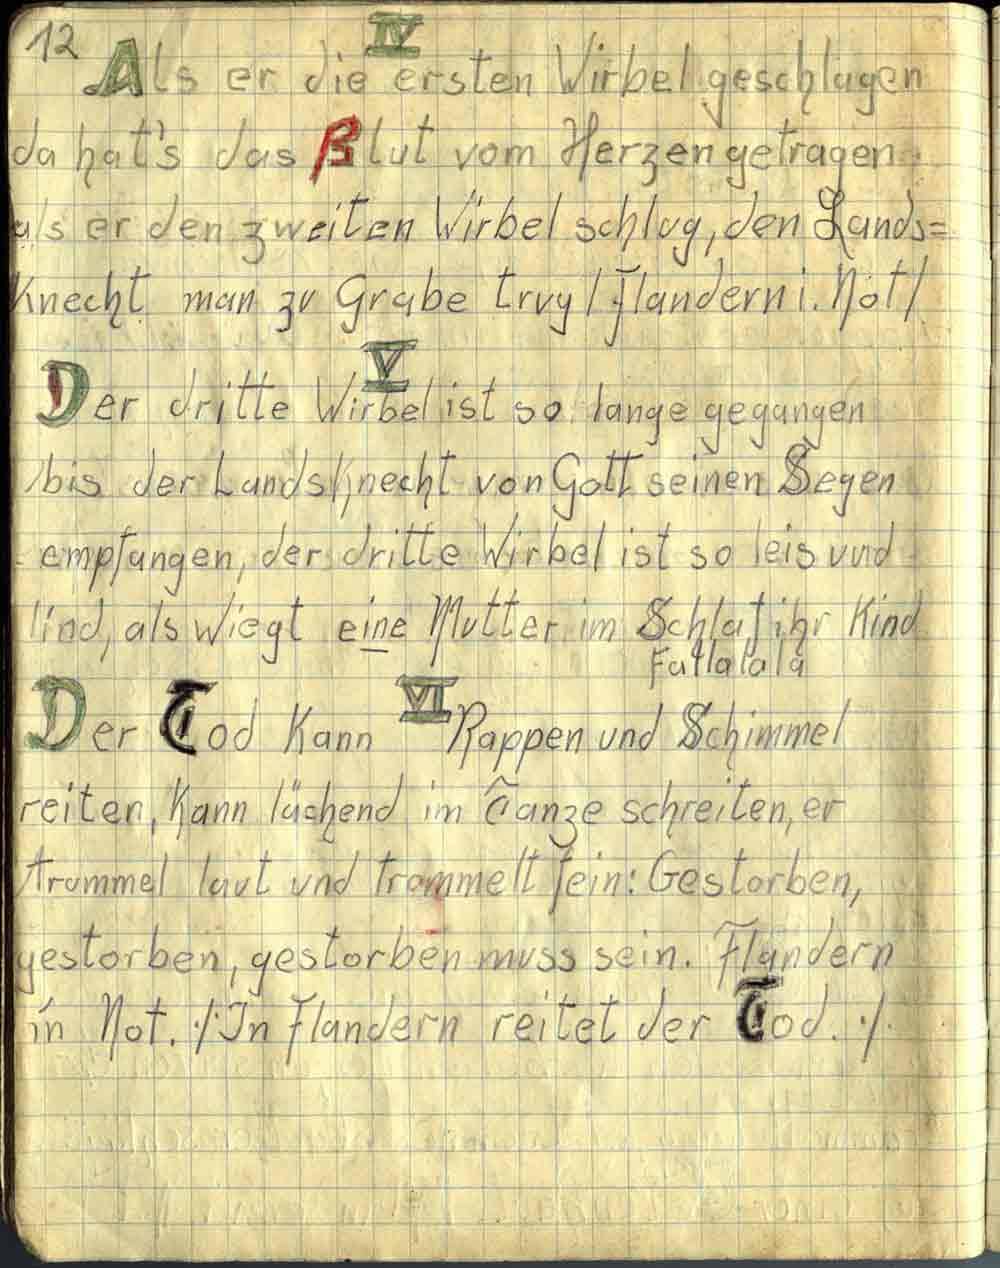 12
IV
Als er die ersten Wirbel geschlagen
da hat's das Blut vom Herzen getragen
als er den zweiten Wirbel schlug, den Lands=
Knecht man zu Grabe trug / Flandern i. Not /
V
Der dritte Wirbel ist so lange gegangen
bis der Landsknecht von Gott seinen Segen
empfangen, der dritte Wirbel ist so leis und
lind, als wiegt eine Mutter im Schlaf ihr Kind
Fallalala
VI
Der Tod Kann Rappen und Schimmel
reiten, Kann lächend im Tanze schreiten, er
trommel laut und trommelt fein: Gestorben,
gestorben, gestorben muss sein. Flandern
in Not. :/: In Flandern reitet der Tod. :/: